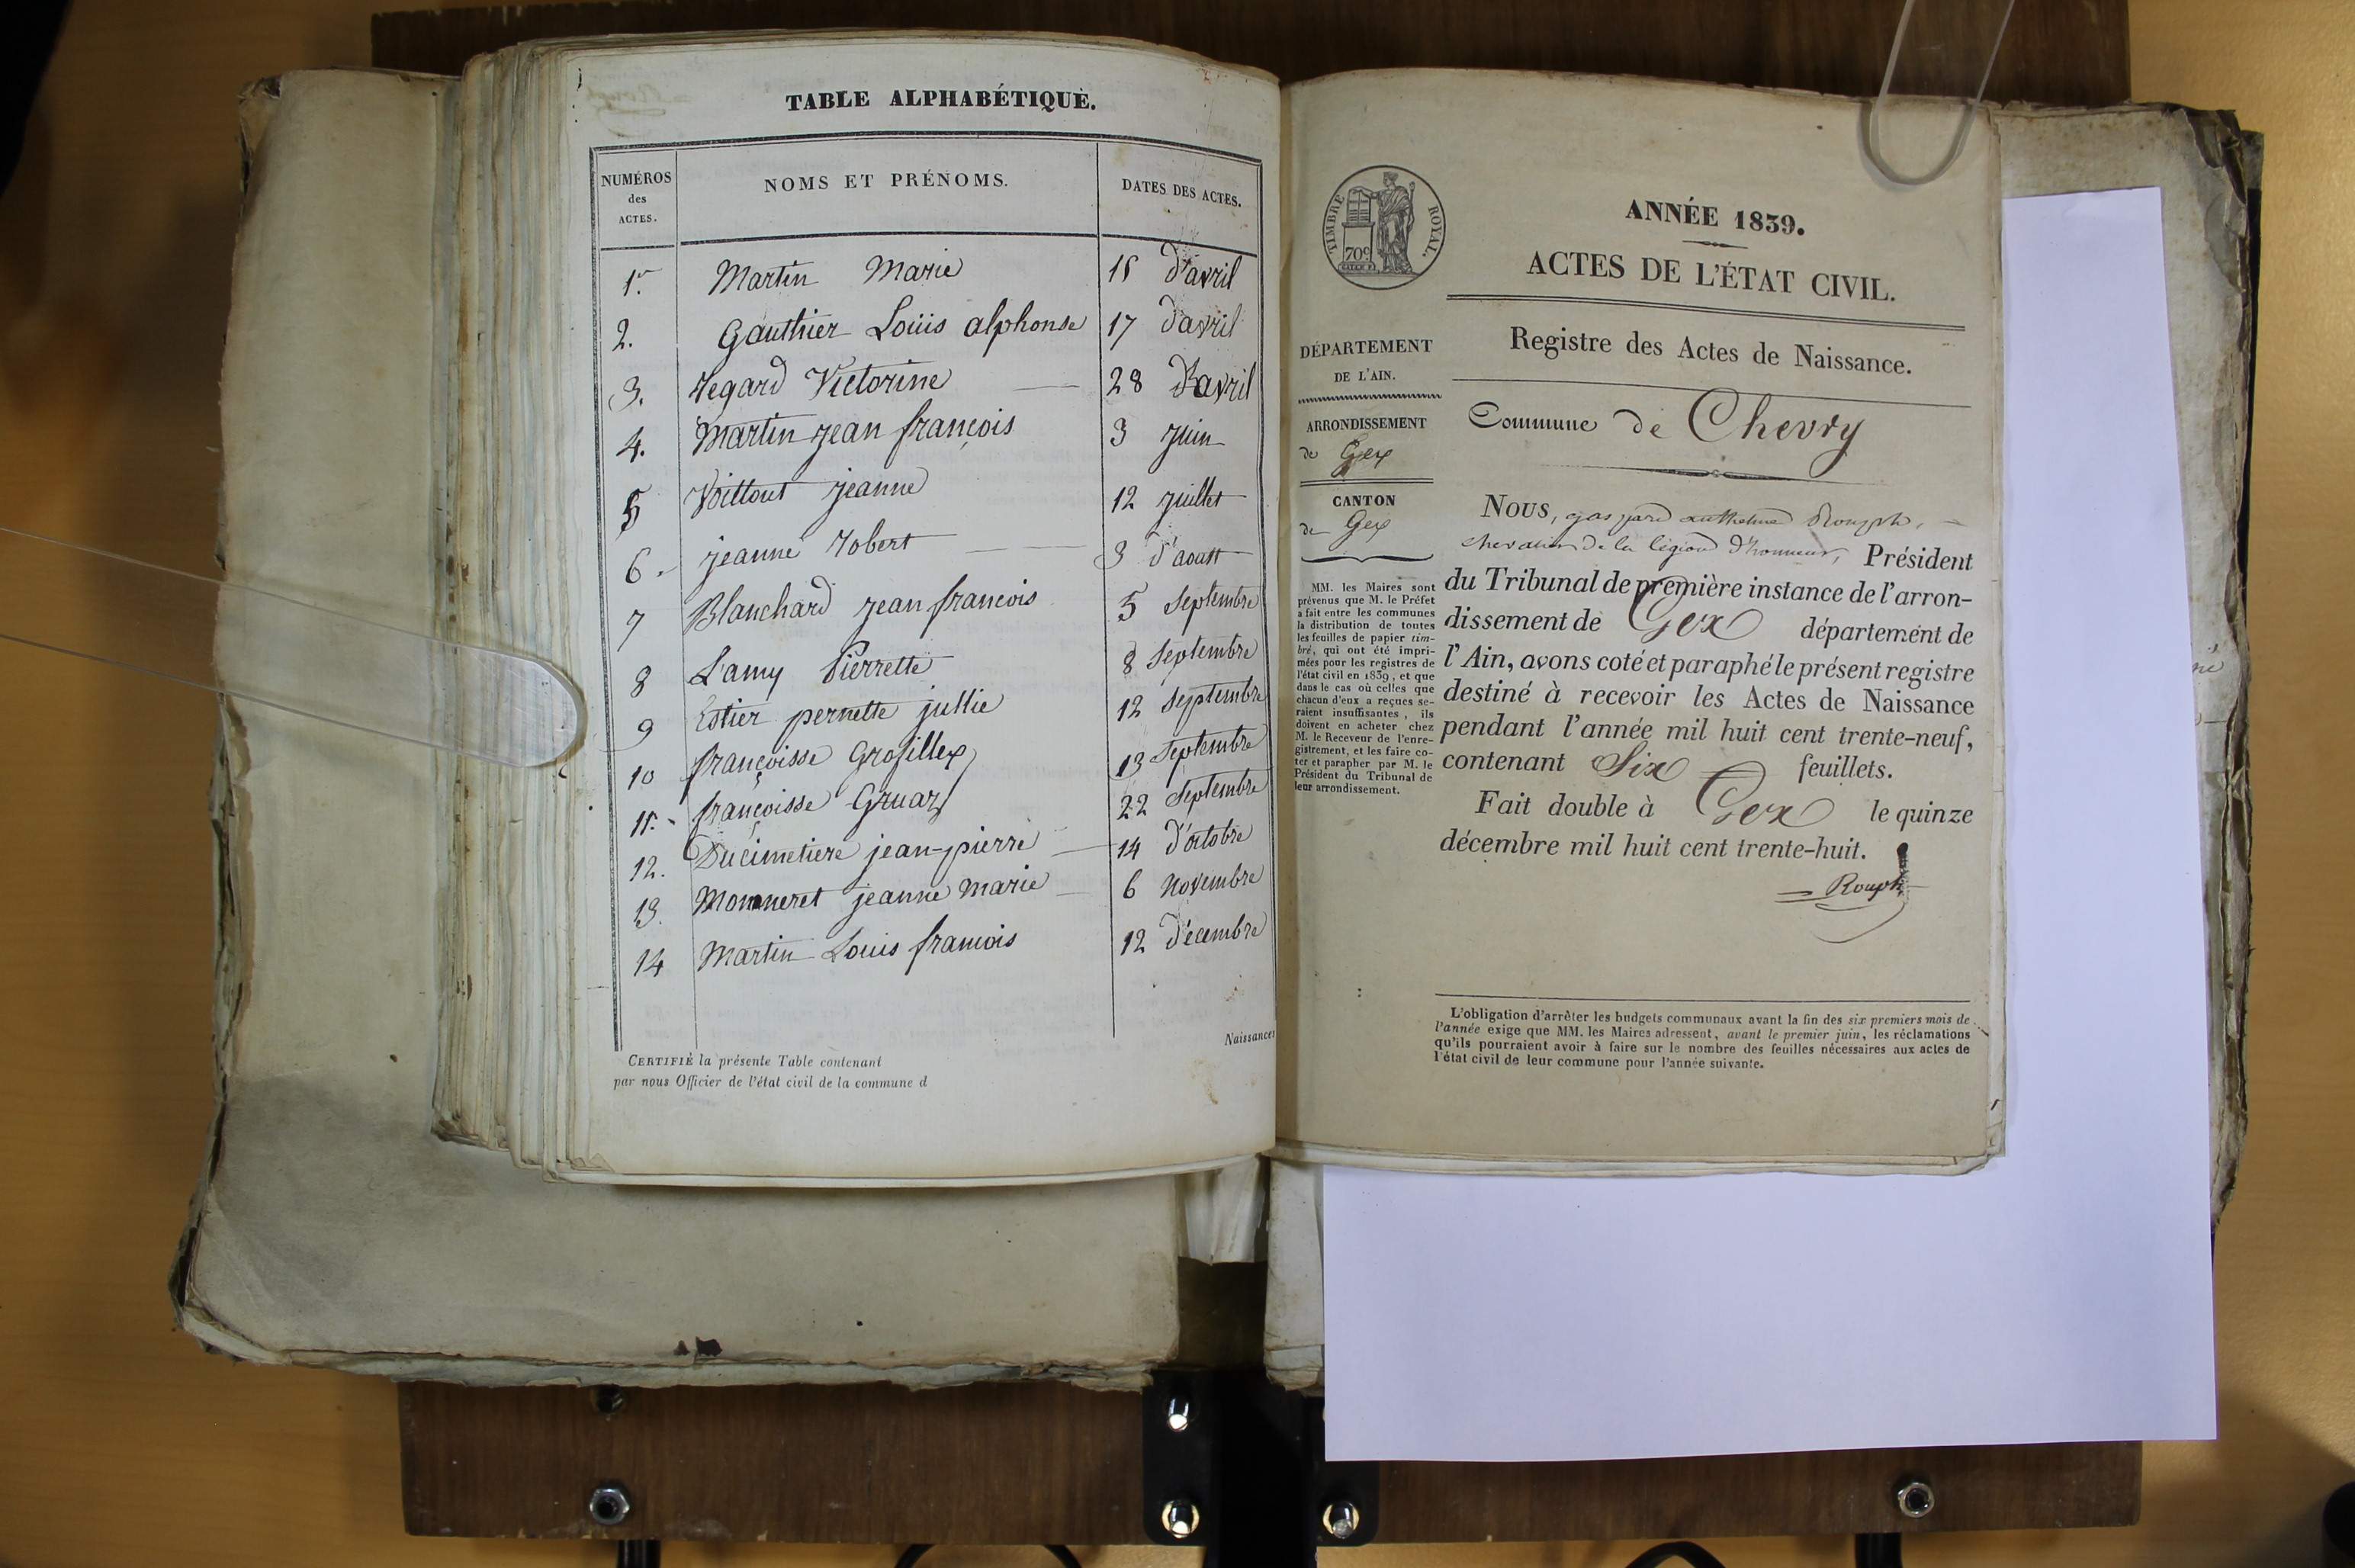 TABLE ALPHABÉTIQUE.
NUMÉROS des ACTES.
NOMS ET PRÉNOMS.
DATES DES ACTES.
1er Martin Marie 15 d'avril
2. Gauthier Loüis alphonse 17 d'avril
3. Regard Victorine 28 d'avril
4. Martin jean françois 3 juin
5 Voillout jeanne 12 juillet
6. jeanne Robert 3 d'aoust
7 Blanchard jean francois 5 Septembre
8 Lamy Pierrette 8 Septembre
9 Estier pernette jullie 12 Septembre
10 françoisse Grosillex 13 Septembre
11. françoisse Gruaz 22 Septembre
12. Ducimetiere jean-pierre 14 d'octobre
13. Monneret jeanne Marie 6 Novembre
14 Martin Louis francois 12 décembre
Naissances
CERTIFIÉ la présente Table contenant
par nous Officier de l'état civil de la commune d
TIMBRE ROYAL.
70c
ANNÉE 1839.
ACTES DE L'ÉTAT CIVIL.
Registre des Actes de Naissance.
DÉPARTEMENT
DE L'AIN.
ARRONDISSEMENT
de Gex
CANTON
de Gex
MM. les Maires sont
prévenus que M. le Préfet
a fait entre les communes
la distribution de toutes
les feuilles de papier tim-
bré, qui ont été impri-
mées pour les registres de
l'état civil en 1839, et que
dans le cas où celles que
chacun d'eux a reçues se-
raient insuffisantes, ils
doivent en acheter chez
M. le Receveur de l'enre-
gistrement, et les faire co-
ter et parapher par M. le
Président du Tribunal de
leur arrondissement.
Commune de Chevry
NOUS, gaspard anthelme Rouph,
chevalier de la légion d'honneur, Président
du Tribunal de première instance de l'arron-
dissement de Gex département de
l'Ain, avons coté et paraphé le présent registre
destiné à recevoir les Actes de Naissance
pendant l'année mil huit cent trente-neuf,
contenant Six feuillets.
Fait double à Gex le quinze
décembre mil huit cent trente-huit.
Rouph
L'obligation d'arrêter les budgets communaux avant la fin des six premiers mois de
l'année exige que MM. les Maires adressent, avant le premier juin, les réclamations
qu'ils pourraient avoir à faire sur le nombre des feuilles nécessaires aux actes de
l'état civil de leur commune pour l'année suivante.